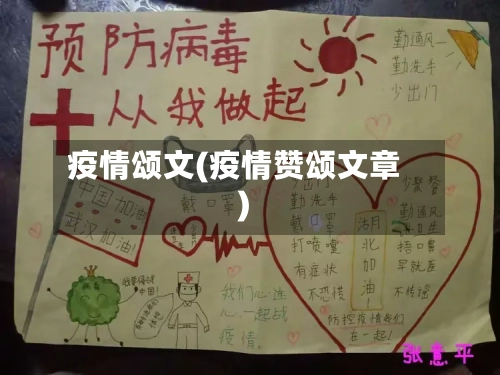 预防病毒
从我做起
勤通风
勤洗手
少出门
疫情颂文(疫情赞颂文章
)
中国加油!
武汉加油!
戴口罩
勤洗手
戴口罩
打喷嚏
有症状
不恐慌
湖
北
加
油
!
少聚餐
勤通风
捂口鼻
早就医
不传谣
我们心连
心一起战
疫情。
防控疫情我们
在一起!
张意平